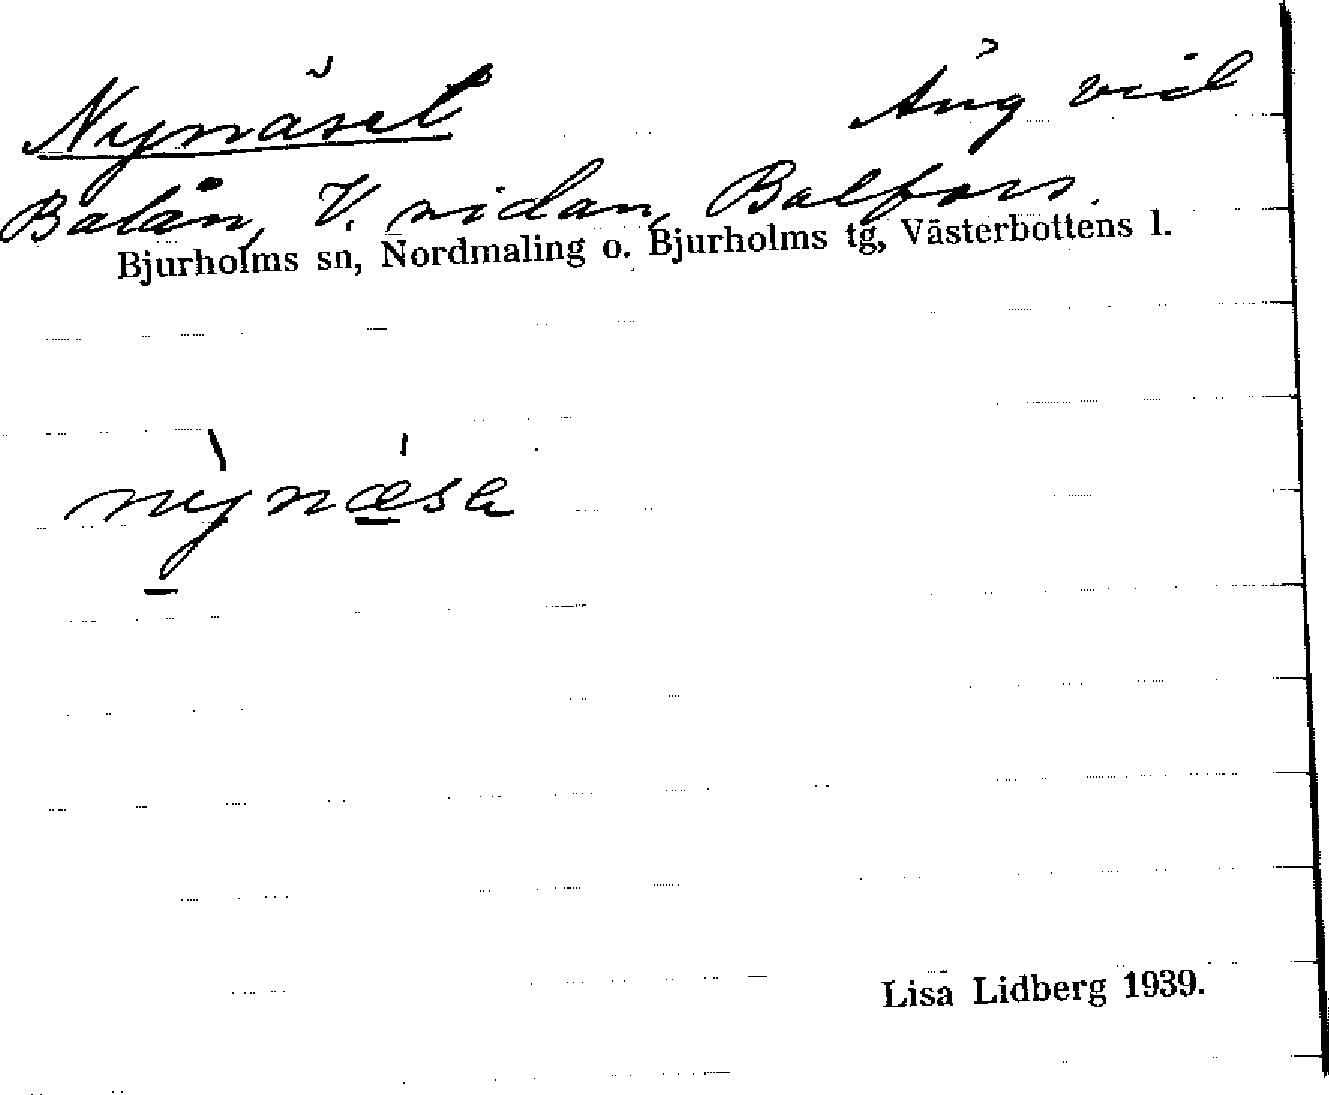 Nynäset Äng vid
Balån, V. sidan, Balfors.
Bjurholms sn, Nordmaling o. Bjurholms tg, Västerbottens l.
nỳnǽsa
Lisa Lidberg 1939.